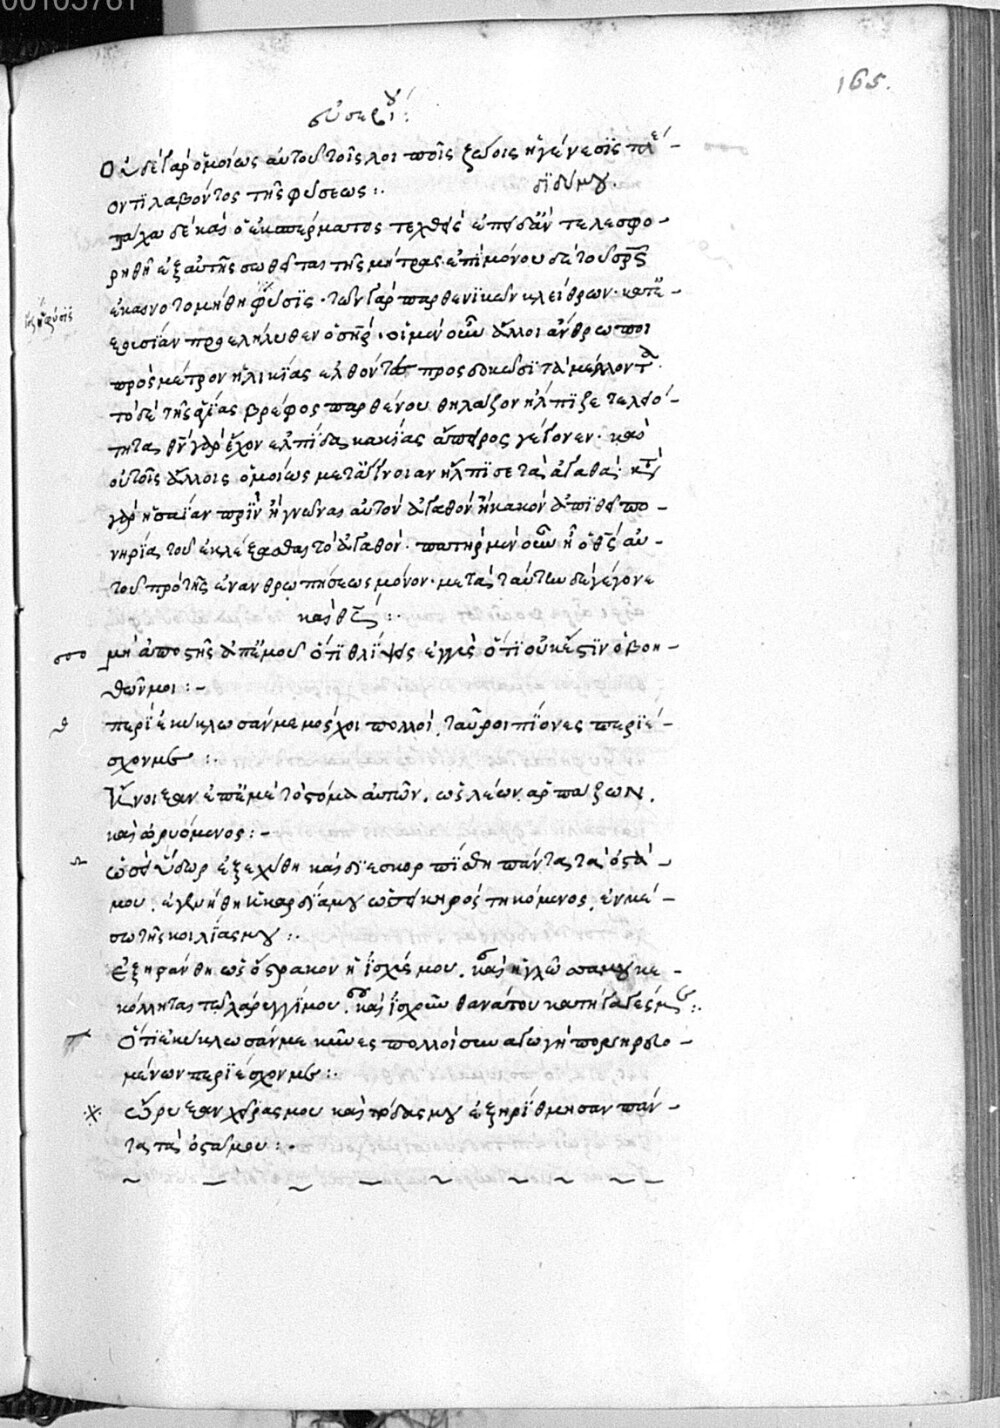 00105761
165.
εὐσεβίου:
Οὐδὲ γὰρ ὁμοίως αὐτοῦ τοῖς λοιποῖς ζώοις ἡ γένεσις
ἀντιλαβόντος τῆς φύσεως:. διδύμου
τάχα δὲ καὶ ὁ ἐκ σπέρματος τεχθεὶς ἐπειδὰν τελεσφο-
ρηθῇ ἐξ αὐτῆς ὠθεῖται τῆς μήτρας· ἐπὶ μόνου δὲ τοῦ σρς
ἐκαινοτομήθη φύσις· τῶν γὰρ παρθενικῶν κλείθρων
προελήλυθεν ὁ σηρ· οἱ μὲν οὖν ἄλλοι ἄνθρωποι
πρὸς μέτρον ἡλικίας ἐλθόντες προσδοκῶσι τὰ μέλλοντα·
τὸ δὲ τῆς ἁγίας βρέφος παρθένου θηλάζον ἤλπιζε τελειό-
τητας θν γὰρ ἔχον ἐλπίδα κακίας ἄπειρος γέγονεν·
τοῖς ἄλλοις ὁμοίως μετὰ ἄγνοιαν ἤλπισε τὰ ἀγαθά·
γὰρ ἠσαΐαν πρὶν ἢ γνῶναι αὐτὸν ἀγαθὸν ἢ κακὸν ἀπειθεῖ πο-
νηρίᾳ τοῦ ἐκλέξασθαι τὸ ἀγαθόν· πατὴρ μὲν οὖν ἦν ὁ θς αὐ-
τοῦ πρὸ τῆς ἐνανθρωπήσεως μόνον· μετὰ ταύτην δὲ γέγονε
καὶ θς:
μὴ ἀποστῇς ἀπ' ἐμοῦ ὅτι θλίψις ἐγγὺς ὅτι οὐκ ἔστιν ὁ βοη-
θῶν μοι:-
περιεκύκλωσάν με μόσχοι πολλοί, ταῦροι πίονες περιέ-
σχον με:.
ἤνοιξαν ἐπ' ἐμὲ τὸ στόμα αὐτῶν. ὡς λέων ἁρπάζων,
καὶ ὠρυόμενος:-
ὡσεὶ ὕδωρ ἐξεχύθη καὶ διεσκορπίσθη πάντα τὰ ὀστᾶ-
μου. ἐγενήθη ἡ καρδία μου ὡσεὶ κηρὸς τηκόμενος, ἐν μέ-
σῳ τῆς κοιλίας μου:.
ἐξηράνθη ὡς ὄστρακον ἡ ἰσχύς μου. καὶ ἡ γλῶσσά μου κε-
κόλληται τῷ λάρυγγί μου. καὶ εἰς χοῦν θανάτου κατήγαγές με:.
Ὅτι ἐκύκλωσάν με κύνες πολλοὶ συναγωγὴ πονηρευο-
μένων περιέσχον με:.
ὤρυξαν χεῖράς μου καὶ πόδας μου ἐξηρίθμησαν πάν-
τα τὰ ὀστᾶ μου:.